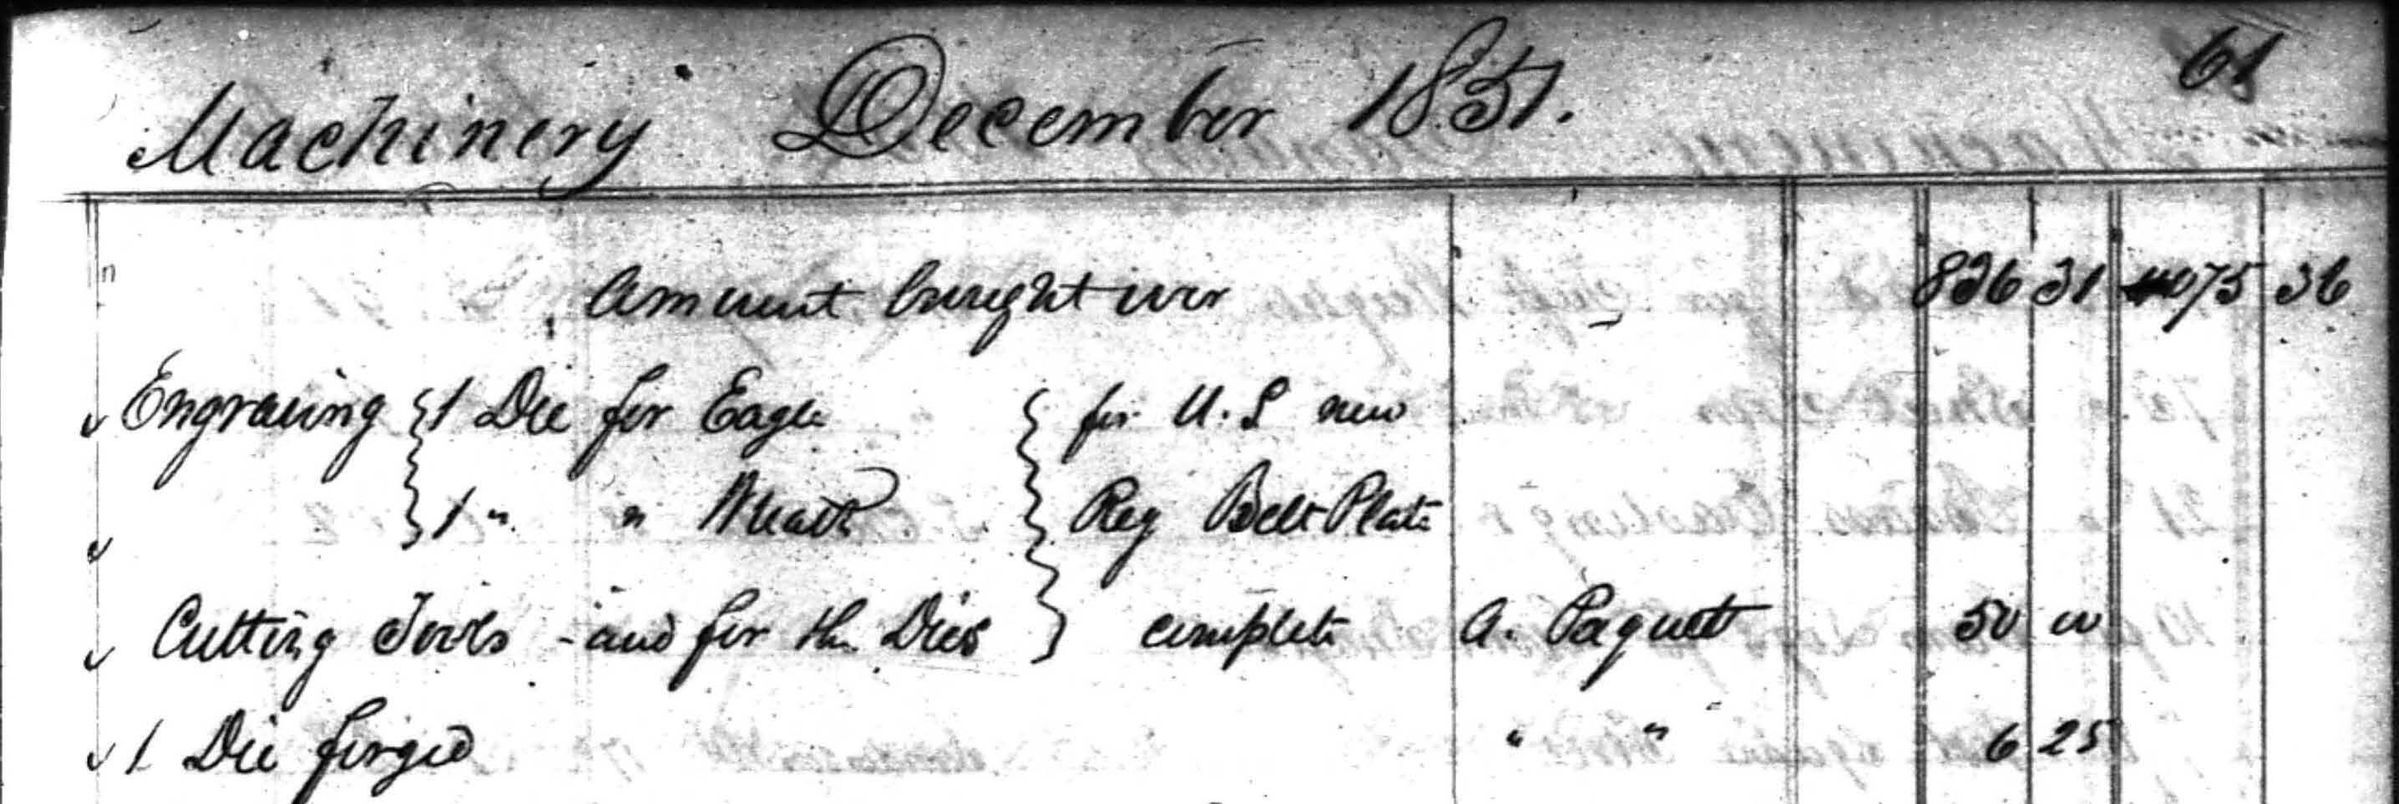 61
Machinery December 1851.
Amount brought over 836 31 1075 36
Engraving { 1 Die for Eagle } for U. S new
{ 1 " " Wreath } Reg Belt Plate
Cutting Tools - and for the Dies } complete A. Paquet 50 00
1 Die forged " " 6 25